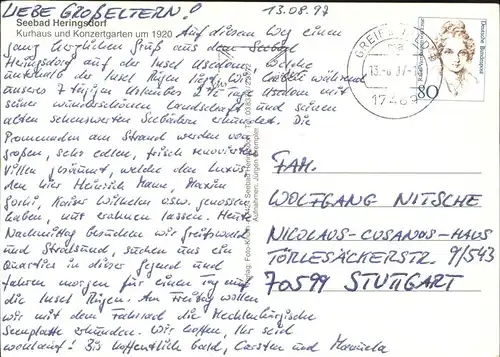 LIEBE GROßELTERN!
13.08.97
Seebad Heringsdorf
Kurhaus und Konzertgarten um 1920
Auf diesem Weg einen
ganz herzlichen Gruß aus dem Seebad
Heringsdorf auf der Insel Usedom, welche
unterhalb der Insel Rügen liegt. Wir haben während
unseres 7 tägigen Urlaubes 2½ Tage Usedom mit
seiner wunderschönen Landschaft und seinen
alten sehenswerten Seebädern erkundet. Die
Promenaden am Strand werden von
großen, sehr edlen, frisch renovierten
Villen gesäumt, welche den Luxus
den hier Heinrich Mann, Maxim
Gorki, Kaiser Wilhelm usw. genossen
haben, nur erahnen lassen. Heute
Nachmittag werden wir Greifswald
und Stralsund, suchen uns ein
Quartier in dieser Gegend und
fahren morgen für einen Tag auf
die Insel Rügen. Am Freitag wollen
wir mit dem Fahrrad die Mecklenburgische
Seenplatte erkunden. Wir hoffen, Ihr seid
wohlauf! Bis hoffentlich bald, Carsten und Manuela
Aufnahmen: Jürgen
GREIFSWALD
13.-8.97
174
Deutsche Bundespost
80
FAM.
WOLFGANG NITSCHE
NICOLAUS-CUSANUS-HAUS
TÖRLESÄCKERSTR. 9/543
70599 STUTTGART